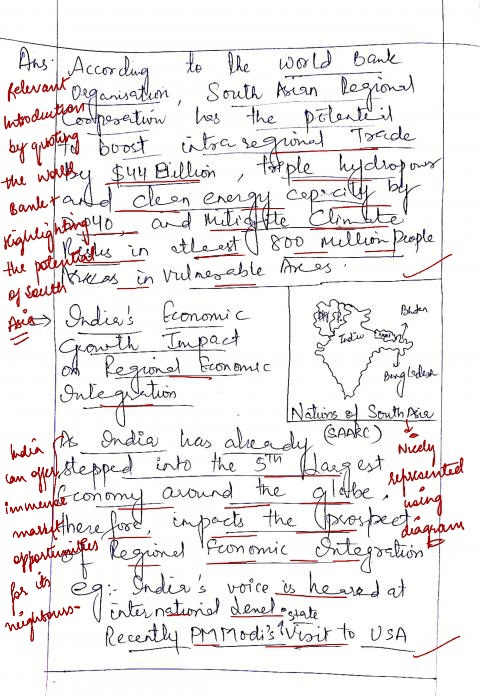 Ans. According to the World Bank
Organisation, South Asian Regional
Cooperation has the potenteil
to boost intra regional Trade
By $44 Billion, triple hydropower
and clean energy capacity by
2040, and Mitigate Climate
Risks in atleast 800 million People
in Vulnerable Areas.
Relevant
Introduction
by quoting
the World
Bank +
Highlighting
the potential
of South
Asia
India's Economic
Growth Impact
on Regional Economic
Integration
India
Bhutan
Bangladesh
Nations of South Asia
(SAARC)
Nicely
represented
using
diagram
As India has already
stepped into the 5TH largest
Economy around the globe.
therefore, impacts the prospect
of Regional Economic Integration
India
can offer
immense
market
opportunities
for its
neighbours-
eg:- India's voice is heard at
international level.
Recently PM Modi's state Visit to USA